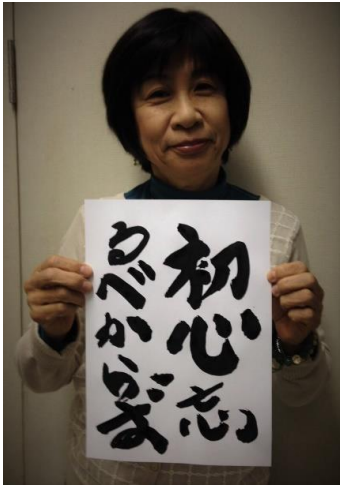 初心忘
るべからず